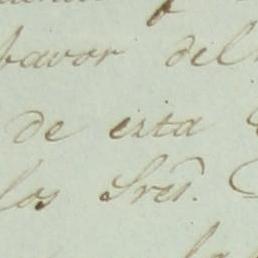 favor del
de esta
los Sres.